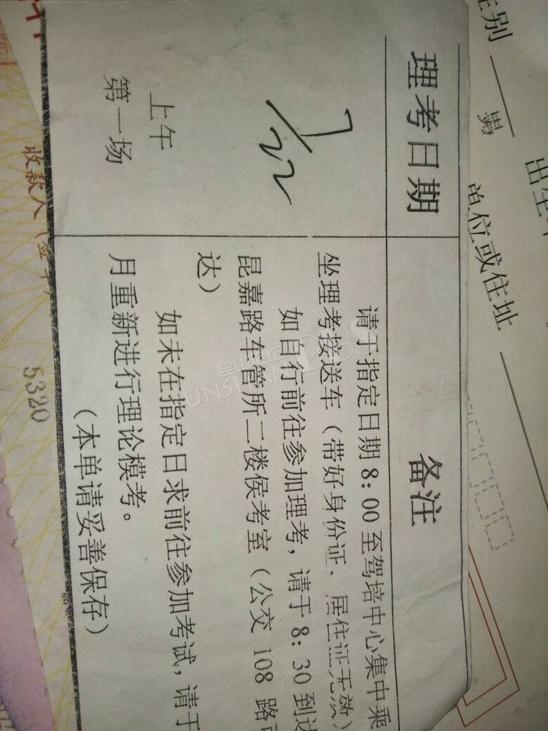 理考日期
备注
7/22
上午
第一场
请于指定日期8:00至驾培中心集中乘
坐理考接送车（带好身份证、居住证无效）
如自行前往参加理考，请于8:30到达
昆嘉路车管所二楼侯考室（公交 108 路
达）
如未在指定日求前往参加考试，请于
月重新进行理论模考。
（本单请妥善保存）
性别
男
出生
单位或住址
收款人
5320